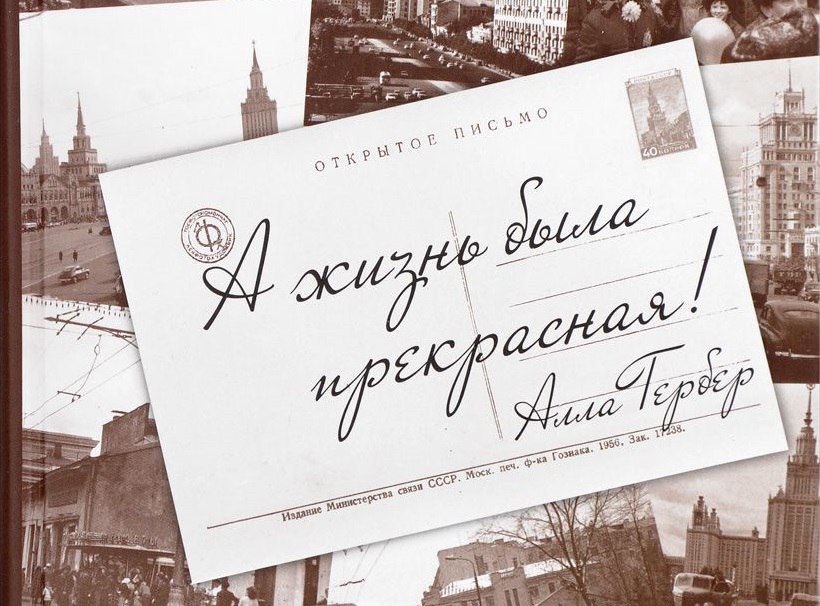 ОТКРЫТОЕ ПИСЬМО
ПОЧТА СССР
40 КОПЕЕК
А жизнь была
прекрасная!
Алла Гербер
Издание Министерства связи СССР. Моск. печ. ф-ка Гознака. 1956. Зак. 17238.